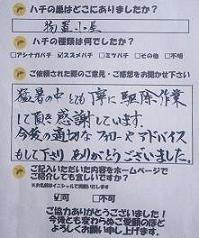 ハチの巣はどこにありましたか?
物置小屋
ハチの種類は何でしたか?
□アシナガバチ ☑スズメバチ □ミツバチ □その他 □不明
ご依頼された際のご意見・ご感想をお聞かせ下さい
猛暑の中とても丁寧に駆除作業
して頂き感謝しています。
今後の適切なフォローやアドバイス
もして下さりありがとうございました。
ご記入いただいた内容をホームページで
ご紹介しても宜しいですか?
※お名前はイニシャルで掲載いたします
☑可 □不可
ご協力ありがとうございました!
今後とも変わらぬご愛顧のほど
よろしくお願い申し上げます。